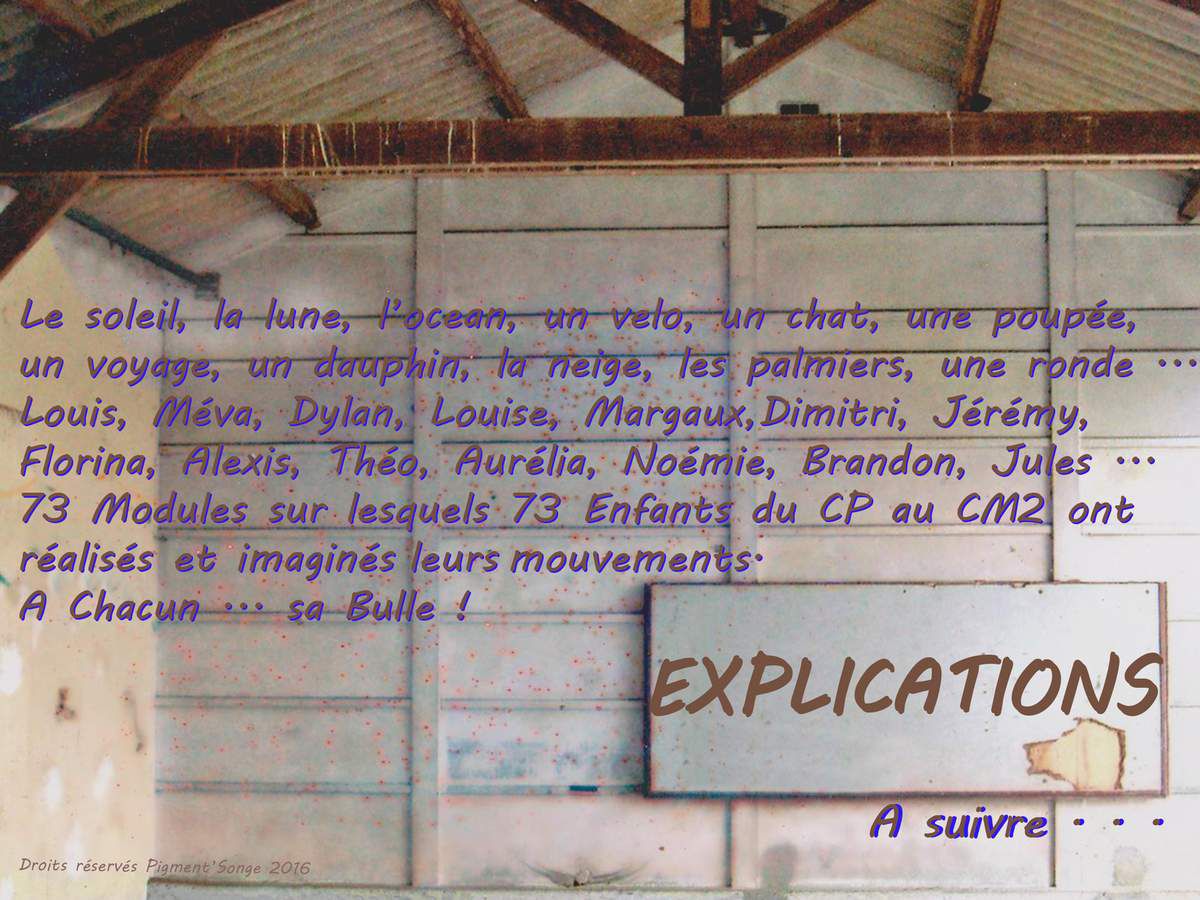 Le soleil, la lune, l'ocean, un velo, un chat, une poupée,
un voyage, un dauphin, la neige, les palmiers, une ronde ...
Louis, Méva, Dylan, Louise, Margaux,Dimitri, Jérémy,
Florina, Alexis, Théo, Aurélia, Noémie, Brandon, Jules ...
73 Modules sur lesquels 73 Enfants du CP au CM2 ont
réalisés et imaginés leurs mouvements.
A Chacun ... sa Bulle !
EXPLICATIONS
A suivre . . .
Droits réservés Pigment'Songe 2016